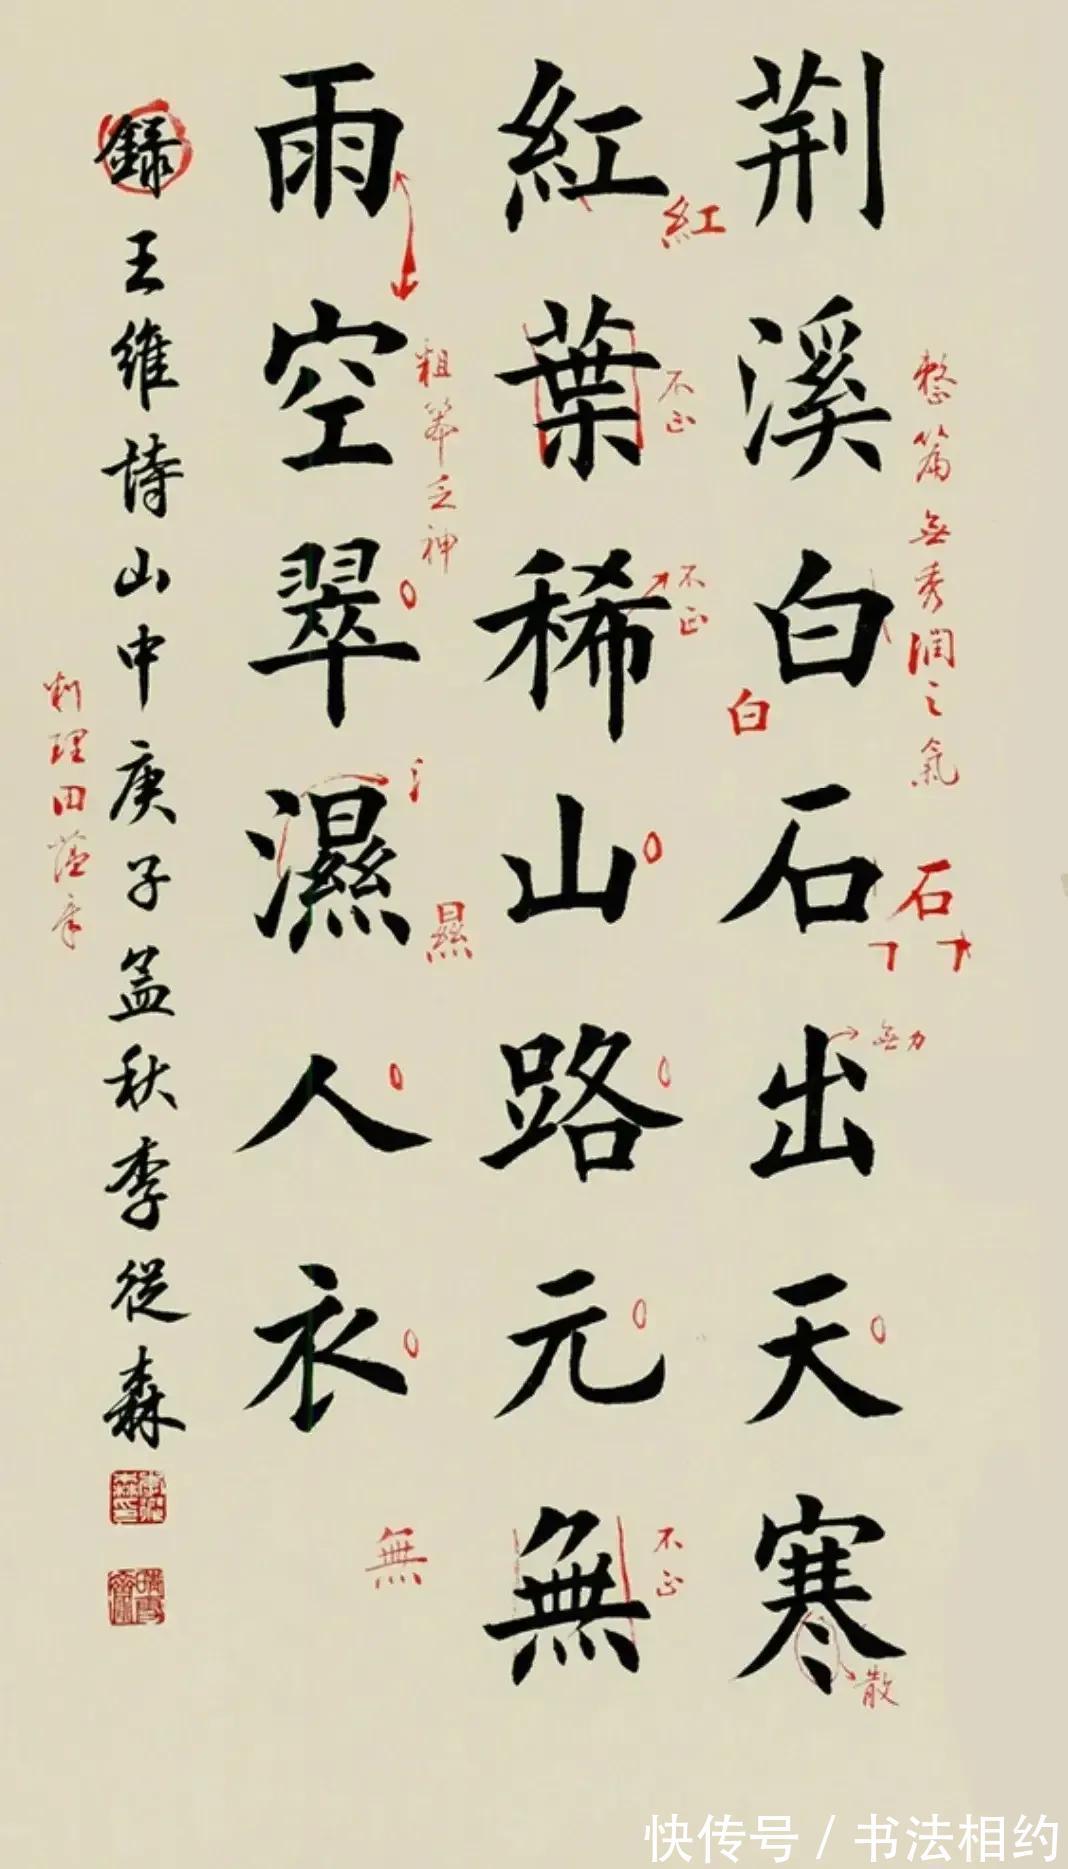 荆溪白石出天寒
紅葉稀山路元無
雨空翠濕人衣
録王維詩山中庚子孟秋李從森
整篇無秀潤之氣
紅
不正
不正
白
石
無力
散
粗笨乏神
㬎
不正
無
快传号 / 书法相约